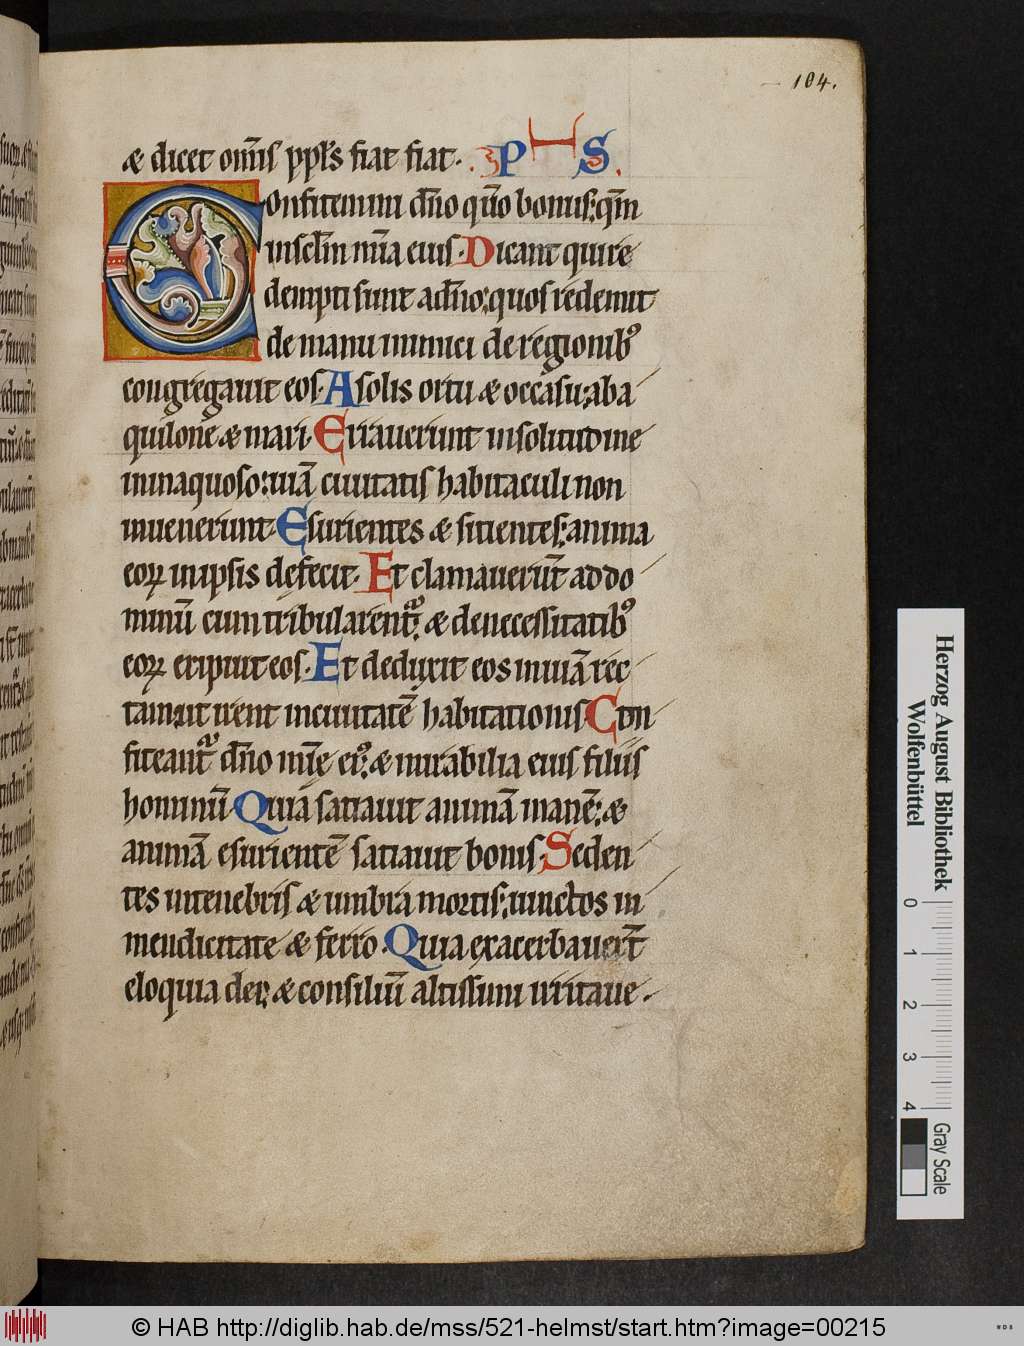 104.
& dicet om̅is pp̅ls fiat fiat. PS.
Confitemini dn̅o qm̅o bonus; qm̅
in sclm̅ mia̅ eius. Dicant qui re
dempti sunt a dn̅o; quos redemit
de manu inimici de regionib9
congregauit eos. A solis ortu & occasu; ab a
quilone & mari. Errauerunt in solitudine
in inaquoso; uia̅ ciuitatis habitaculi non
inuenerunt. Esurientes & sitientes; anima
eoꝝ in ipsis defecit. Et clamauerūt ad do
minū cum tribularent᷑; & de necessitatib9
eoꝝ eripiut eos. Et deduxit eos in uiā rec
tam; ut irent in ciuitatē habitationis. Con
fiteant᷑ dn̅o mīę ei9; & mirabilia eius filiis
hominū. Quia satiauit animā inanē; &
animā esurientē satiauit bonis. Seden
tes in tenebris & umbra mortis; iunctos in
mendicitate & ferro. Quia exacerbauerūt
eloquia dei; & consiliū altissimi irritaue.
Herzog August Bibliothek
Wolfenbüttel
0 1 2 3 4
Gray Scale
© HAB http://diglib.hab.de/mss/521-helmst/start.htm?image=00215